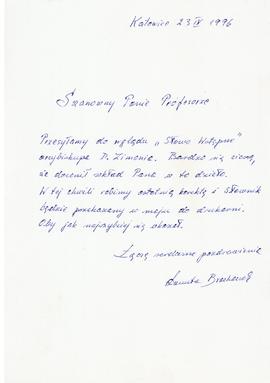 Katowice 23 IV 1996
Szanowny Panie Profesorze
Przesyłamy do wglądu „Słowo Wstępne"
arcybiskupa D. Zimonia. Bardzo się cieszę,
że docenił wkład Pana w to dzieło.
W tej chwili robimy ostatnią korektę i słownik
będzie przekazany w maju do drukarni.
Oby jak najszybciej się ukazał.
Łączę serdeczne pozdrowienia